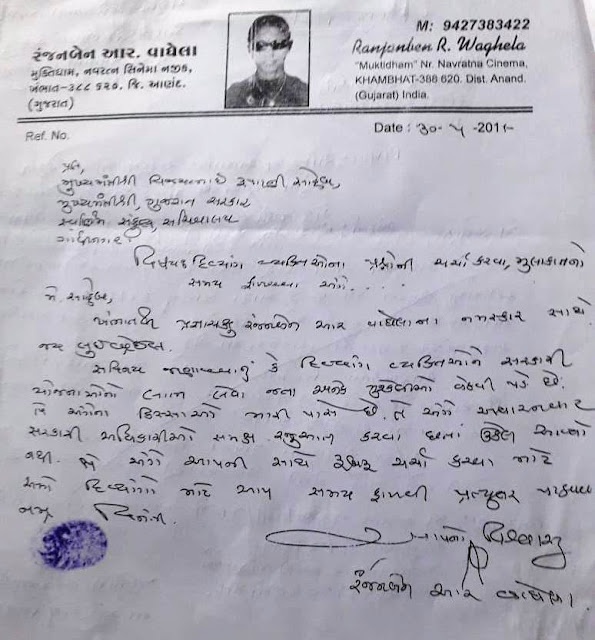 M: 9427383422
રંજનબેન આર. વાઘેલા
મુક્તિધામ, નવરત્ન સિનેમા નજીક,
ખંભાત-૩૮૮ ૬૨૦. જિ. આણંદ.
(ગુજરાત)
Ranjanben R. Waghela
"Muktidham" Nr. Navratna Cinema,
KHAMBHAT-388 620. Dist. Anand.
(Gujarat) India.
Ref. No.
Date : ૩૦-૫-201
પ્રતિ,
મુખ્યમંત્રીશ્રી વિજયભાઈ રૂપાણી સાહેબ,
મુખ્યમંત્રીશ્રી, ગુજરાત સરકાર
સ્વર્ણિમ સંકુલ, સચિવાલય
ગાંધીનગર.
વિષય: દિવ્યાંગ વ્યક્તિઓના પ્રશ્નોની ચર્ચા કરવા, મુલાકાતનો
સમય ફાળવવા અંગે...
મે. સાહેબ,
ખંભાતથી રંજનબેન આર વાઘેલાના નમસ્કાર સાથે
જય
સવિનય જણાવવાનું કે દિવ્યાંગ વ્યક્તિઓને સરકારી
યોજનાઓનો લાભ લેવા જતા અનેક મુશ્કેલીઓ વેઠવી પડે છે.
તે અંગેના કિસ્સાઓ મારી પાસે છે. તે અંગે અવારનવાર
સરકારી અધિકારીઓ સમક્ષ રજુઆત કરવા છતાં ઉકેલ આવ્યો
નથી. જે અંગે આપની સાથે રૂબરૂ ચર્ચા કરવા માટે
અમો દિવ્યાંગો માટે આપ સમય ફાળવી પ્રત્યુત્તર પાઠવવા
નમ્ર વિનંતી.
આપનો વિશ્વાસુ
રંજનબેન આર વાઘેલા.